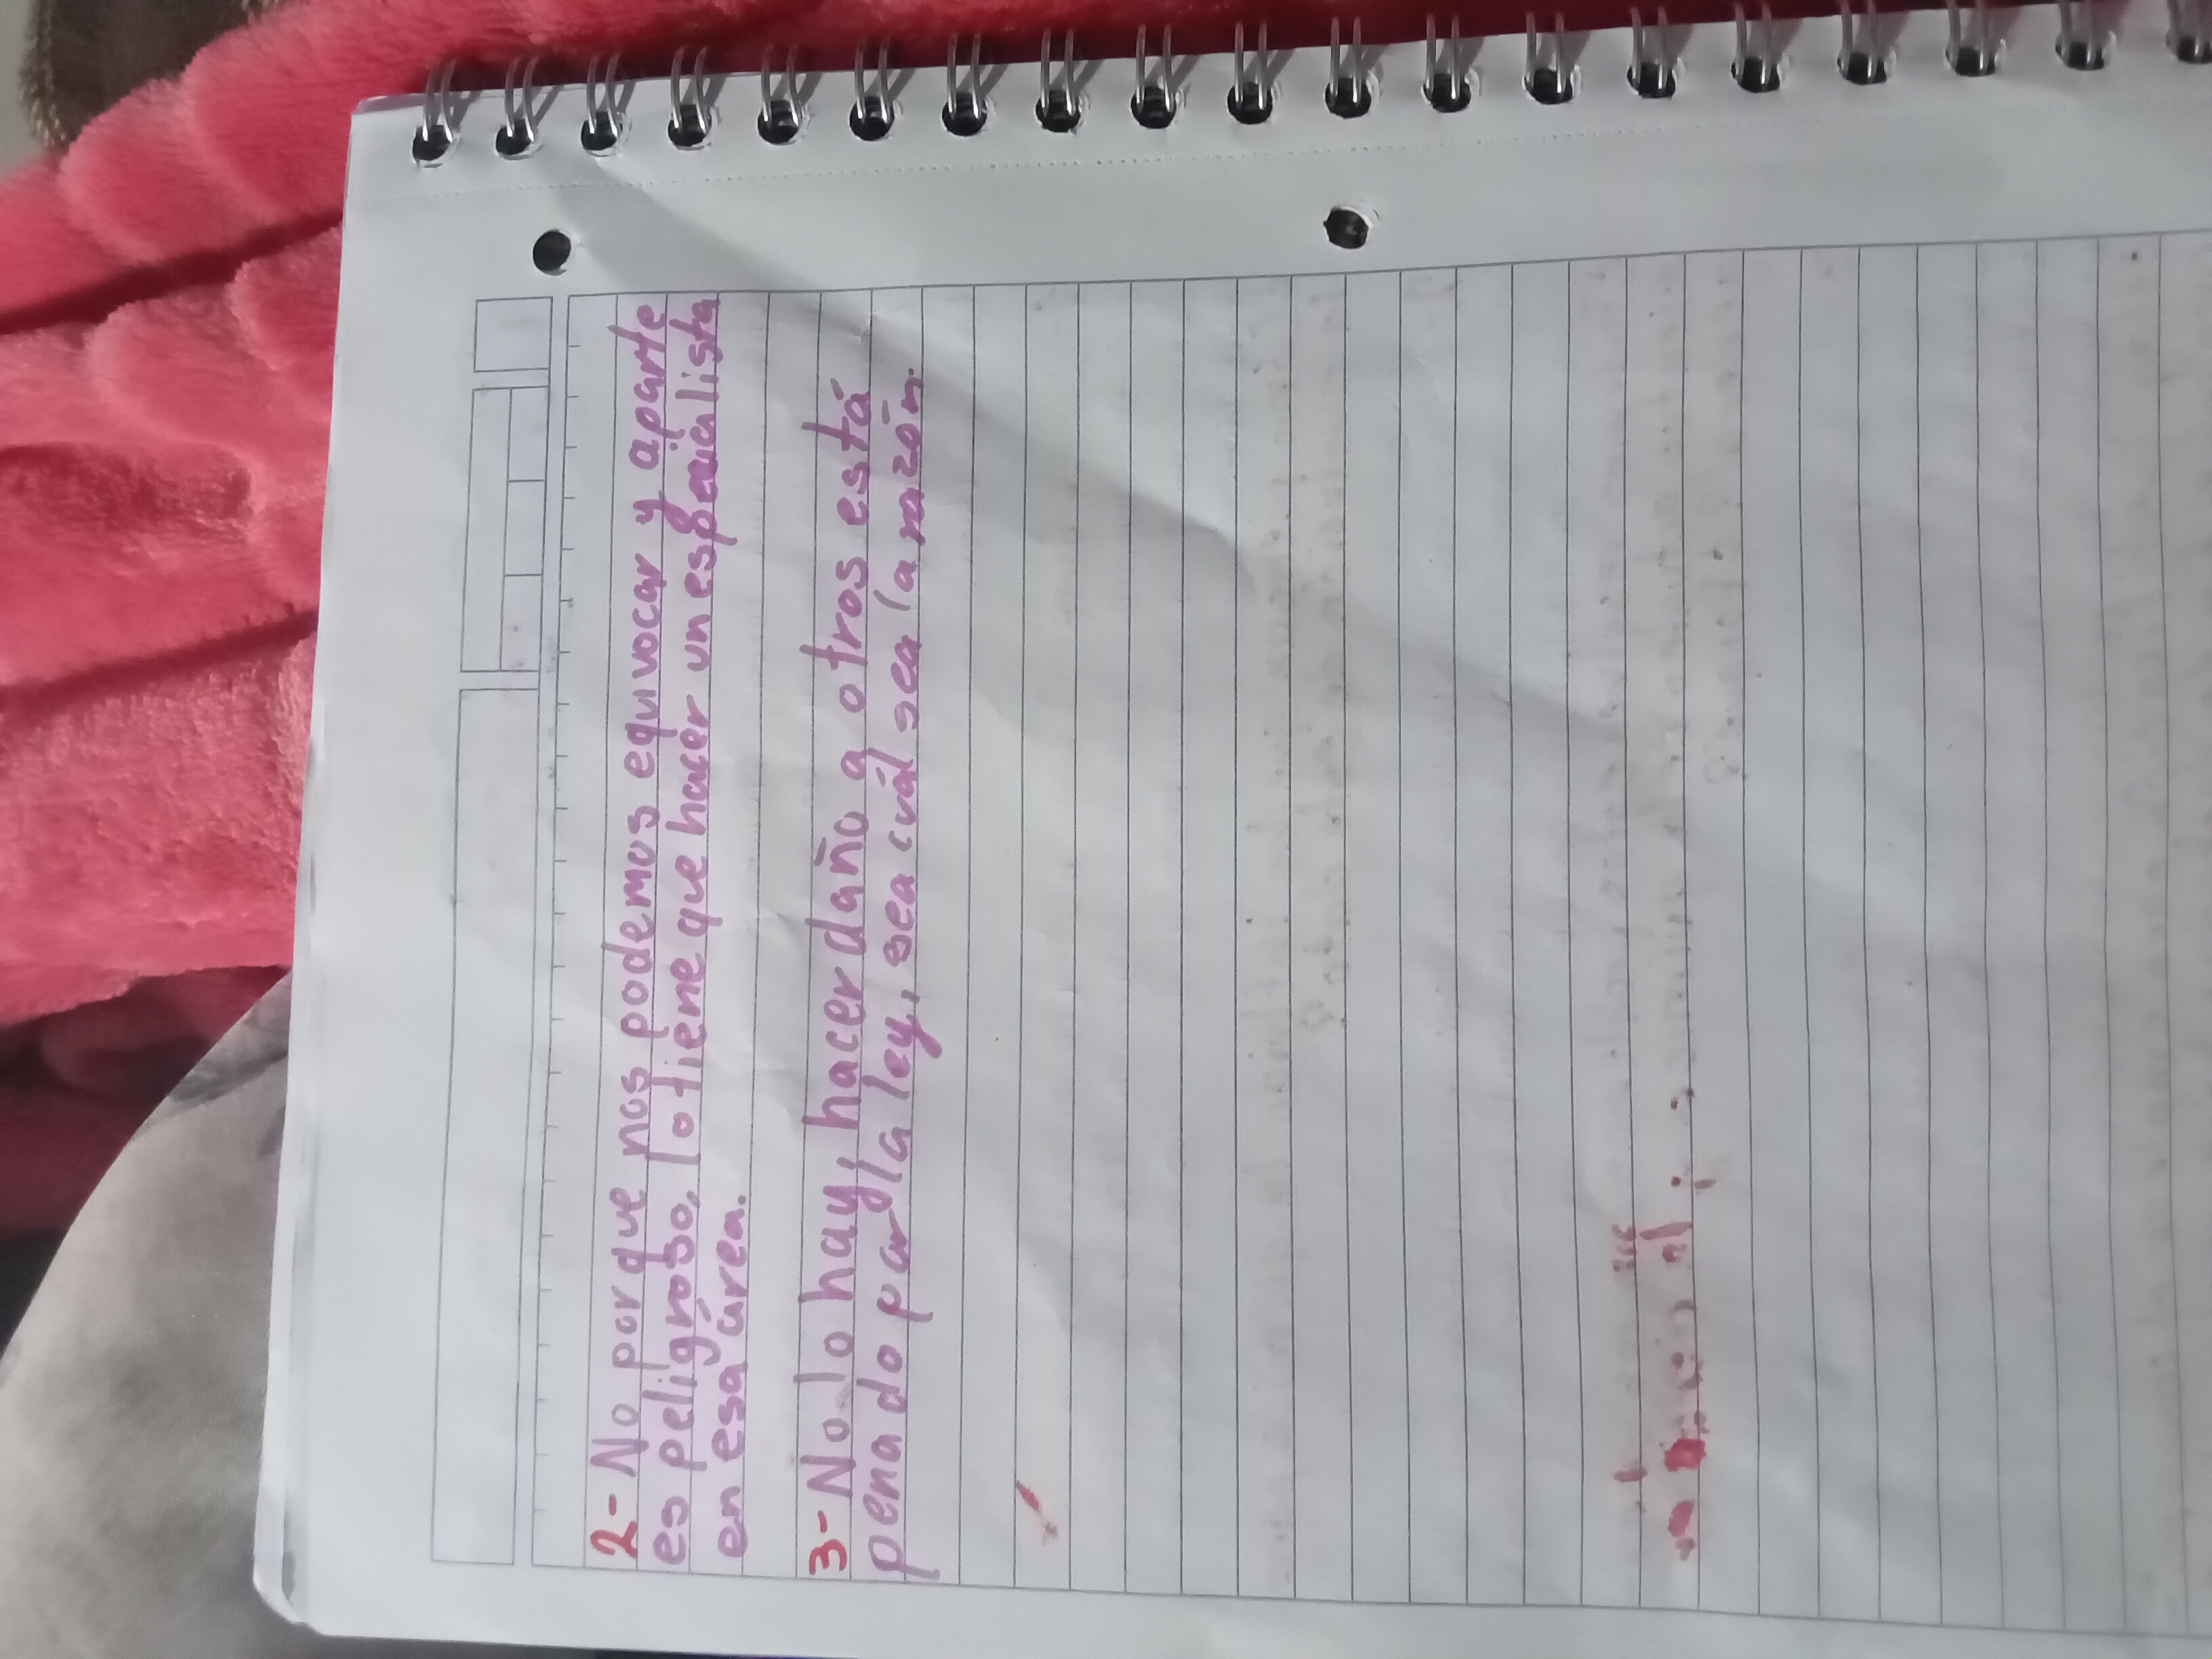 2- No porque nos podemos equivocar y aparte
es peligroso, lo tiene que hacer un especialista
en esa área.
3- No lo hay, hacer daño a otros está
penado por la ley, sea cuál sea la razón.